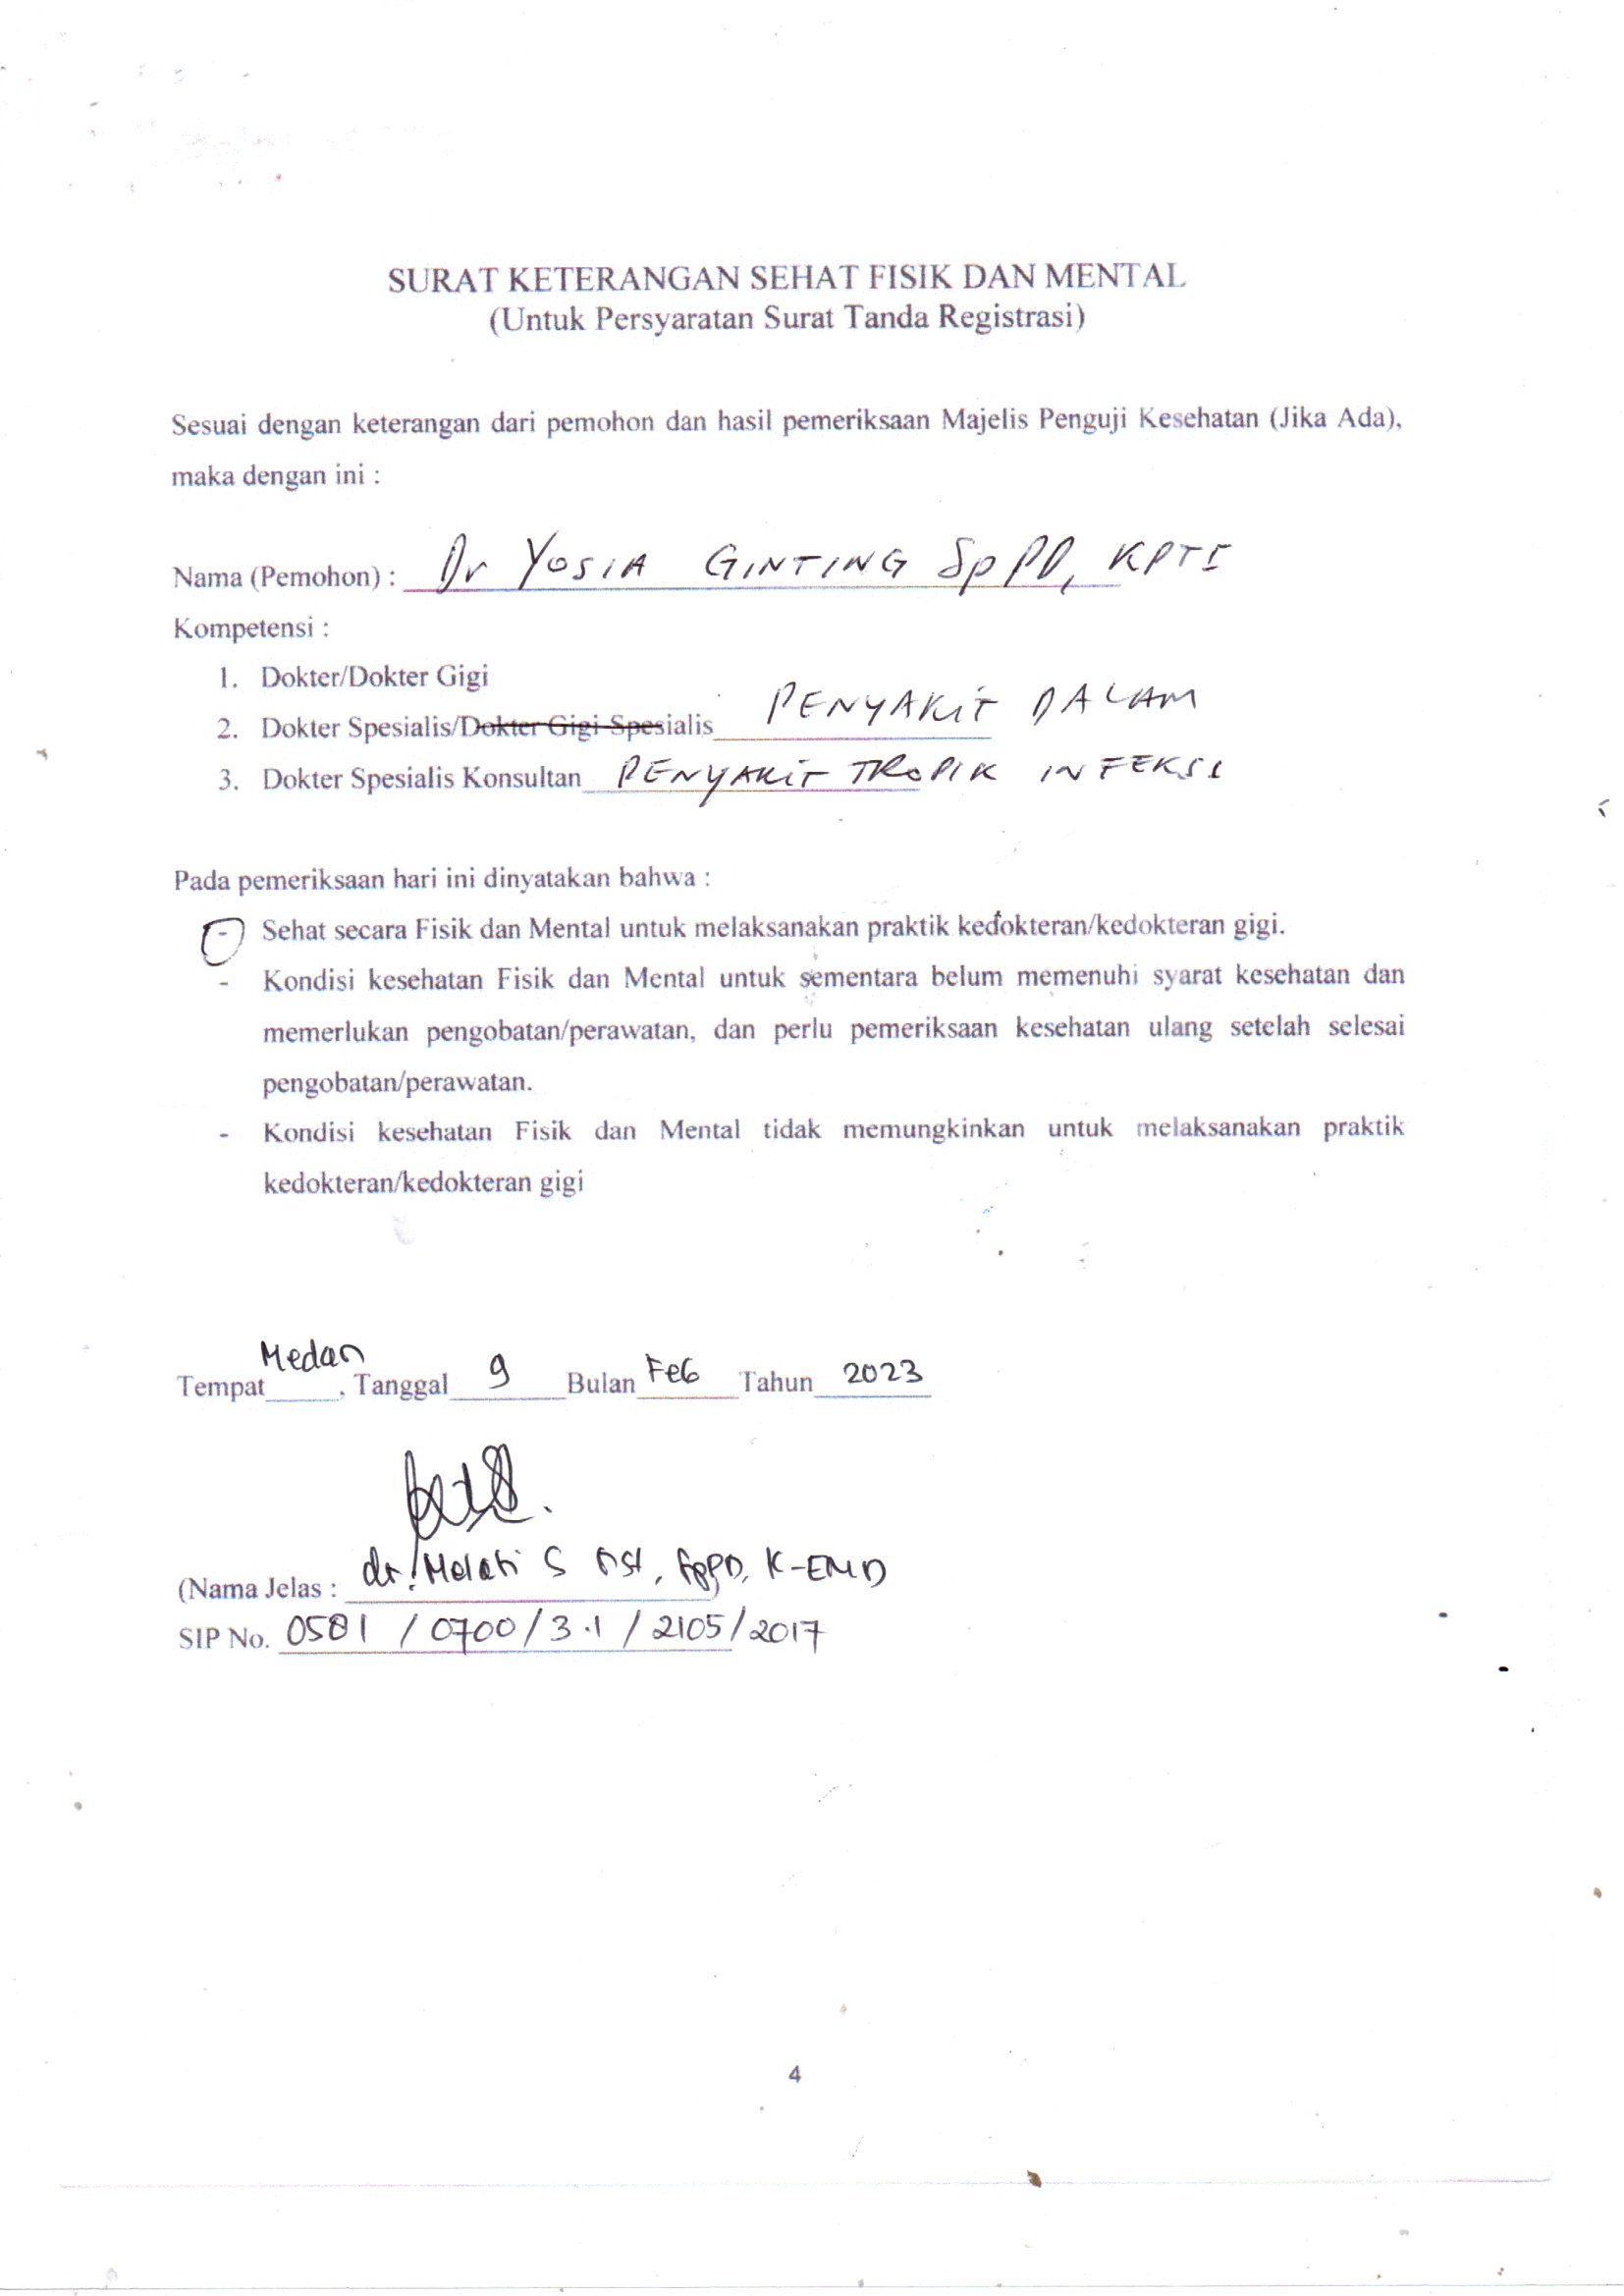 SURAT KETERANGAN SEHAT FISIK DAN MENTAL
(Untuk Persyaratan Surat Tanda Registrasi)
Sesuai dengan keterangan dari pemohon dan hasil pemeriksaan Majelis Penguji Kesehatan (Jika Ada),
maka dengan ini :
Nama (Pemohon) : Dr YOSIA GINTING SpPD, KPTI
Kompetensi :
1. Dokter/Dokter Gigi
2. Dokter Spesialis/Dokter Gigi Spesialis PENYAKIT DALAM
3. Dokter Spesialis Konsultan PENYAKIT TROPIK INFEKSI
Pada pemeriksaan hari ini dinyatakan bahwa :
- Sehat secara Fisik dan Mental untuk melaksanakan praktik kedokteran/kedokteran gigi.
- Kondisi kesehatan Fisik dan Mental untuk sementara belum memenuhi syarat kesehatan dan
memerlukan pengobatan/perawatan, dan perlu pemeriksaan kesehatan ulang setelah selesai
pengobatan/perawatan.
- Kondisi kesehatan Fisik dan Mental tidak memungkinkan untuk melaksanakan praktik
kedokteran/kedokteran gigi
Tempat Medan, Tanggal 9 Bulan Feb Tahun 2023
(Nama Jelas : dr. Melati S , SpPD, K-EMD
SIP No. 0581 / 0700 / 3.1 / 2105 / 2017
4